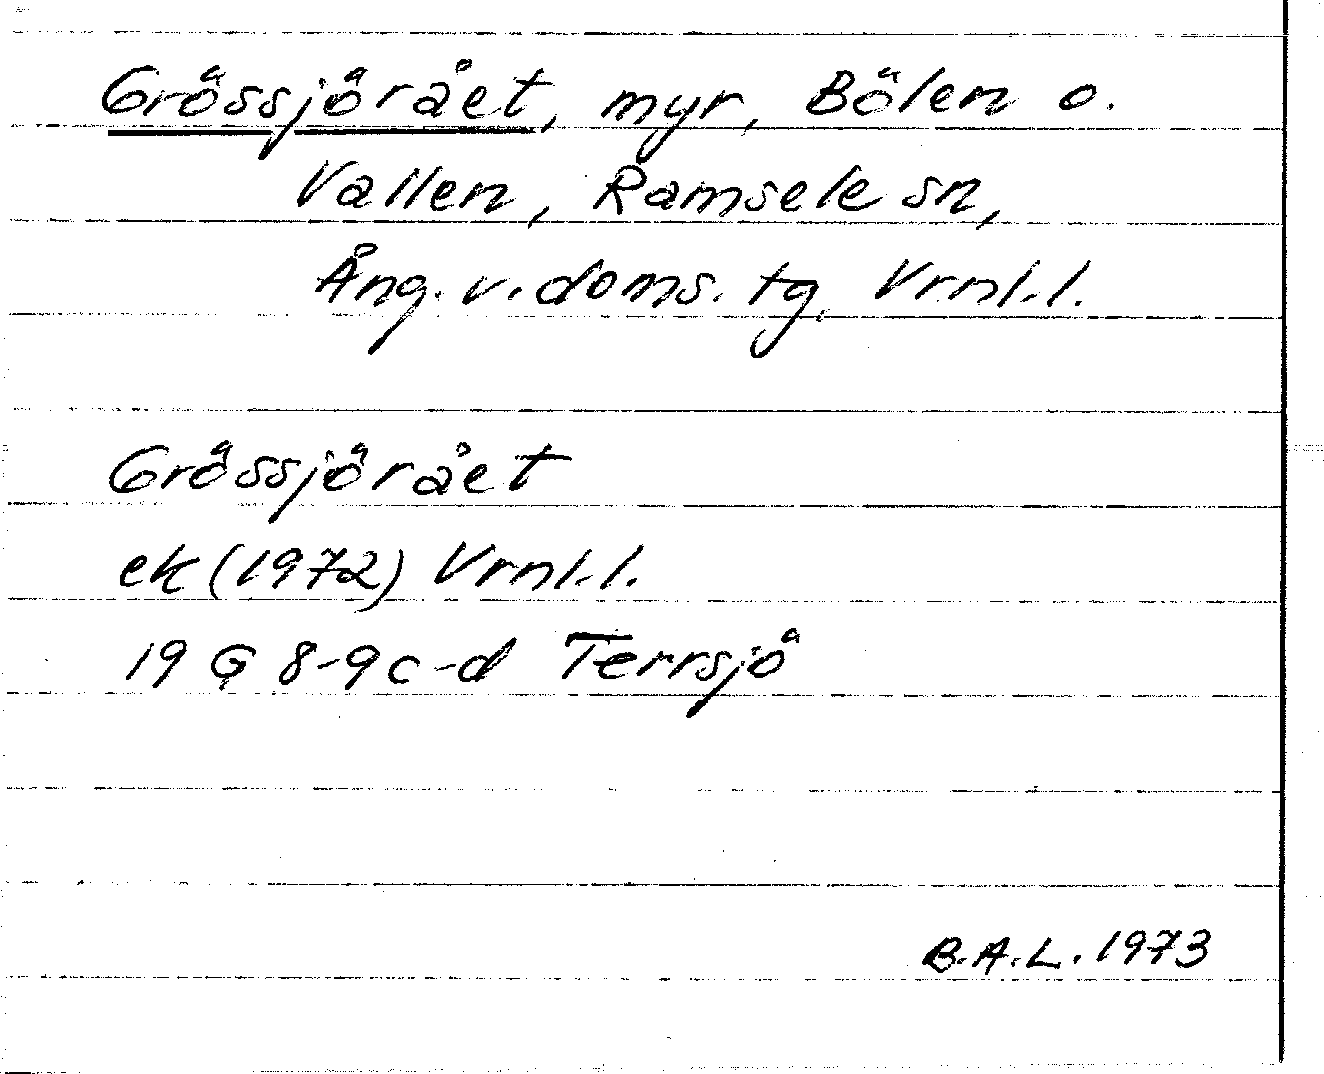 Grössjörået, myr, Bölen o.
Vallen, Ramsele sn,
Ång. v. doms. tg, Vrnl.l.
Grössjörået
ek (1972) Vrnl.l.
19 G 8-9 c-d Terrsjö
B.A.L. 1973